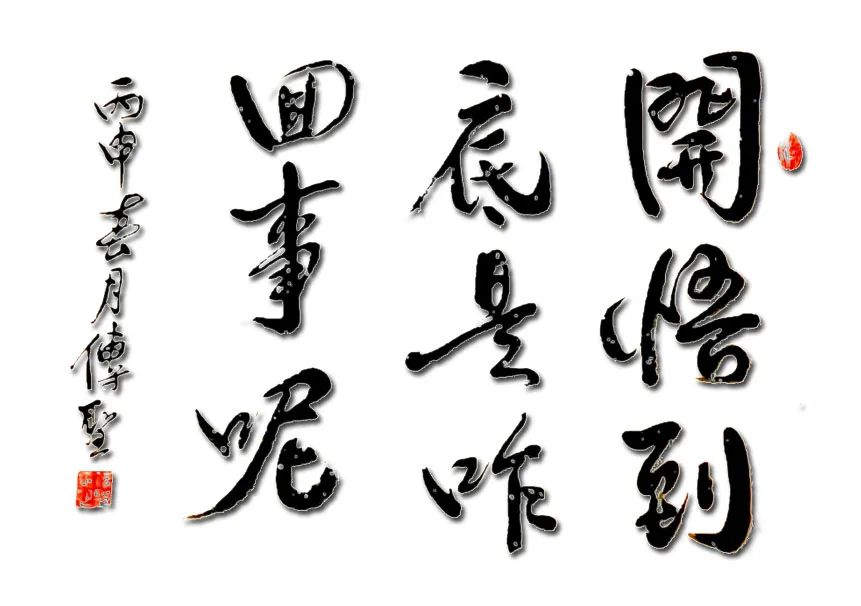 開悟到
底是咋
回事呢
丙申春月傳聖